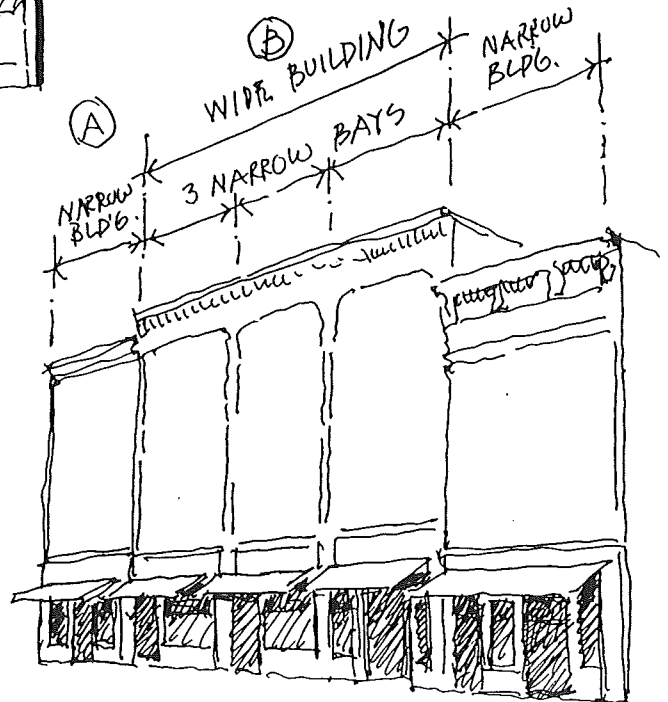 B
WIDE BUILDING
NARROW
BLDG.
A
3 NARROW BAYS
NARROW
BLD'G.